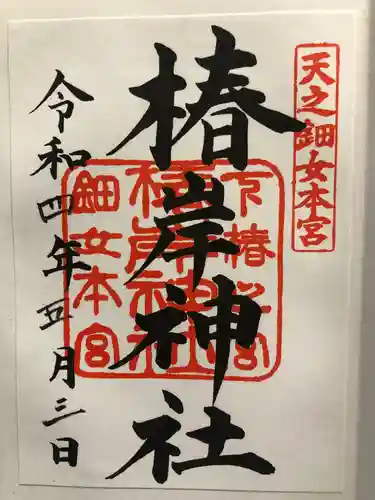 天之鈿女本宮
椿岸神社
鈿女本宮
令和四年五月三日